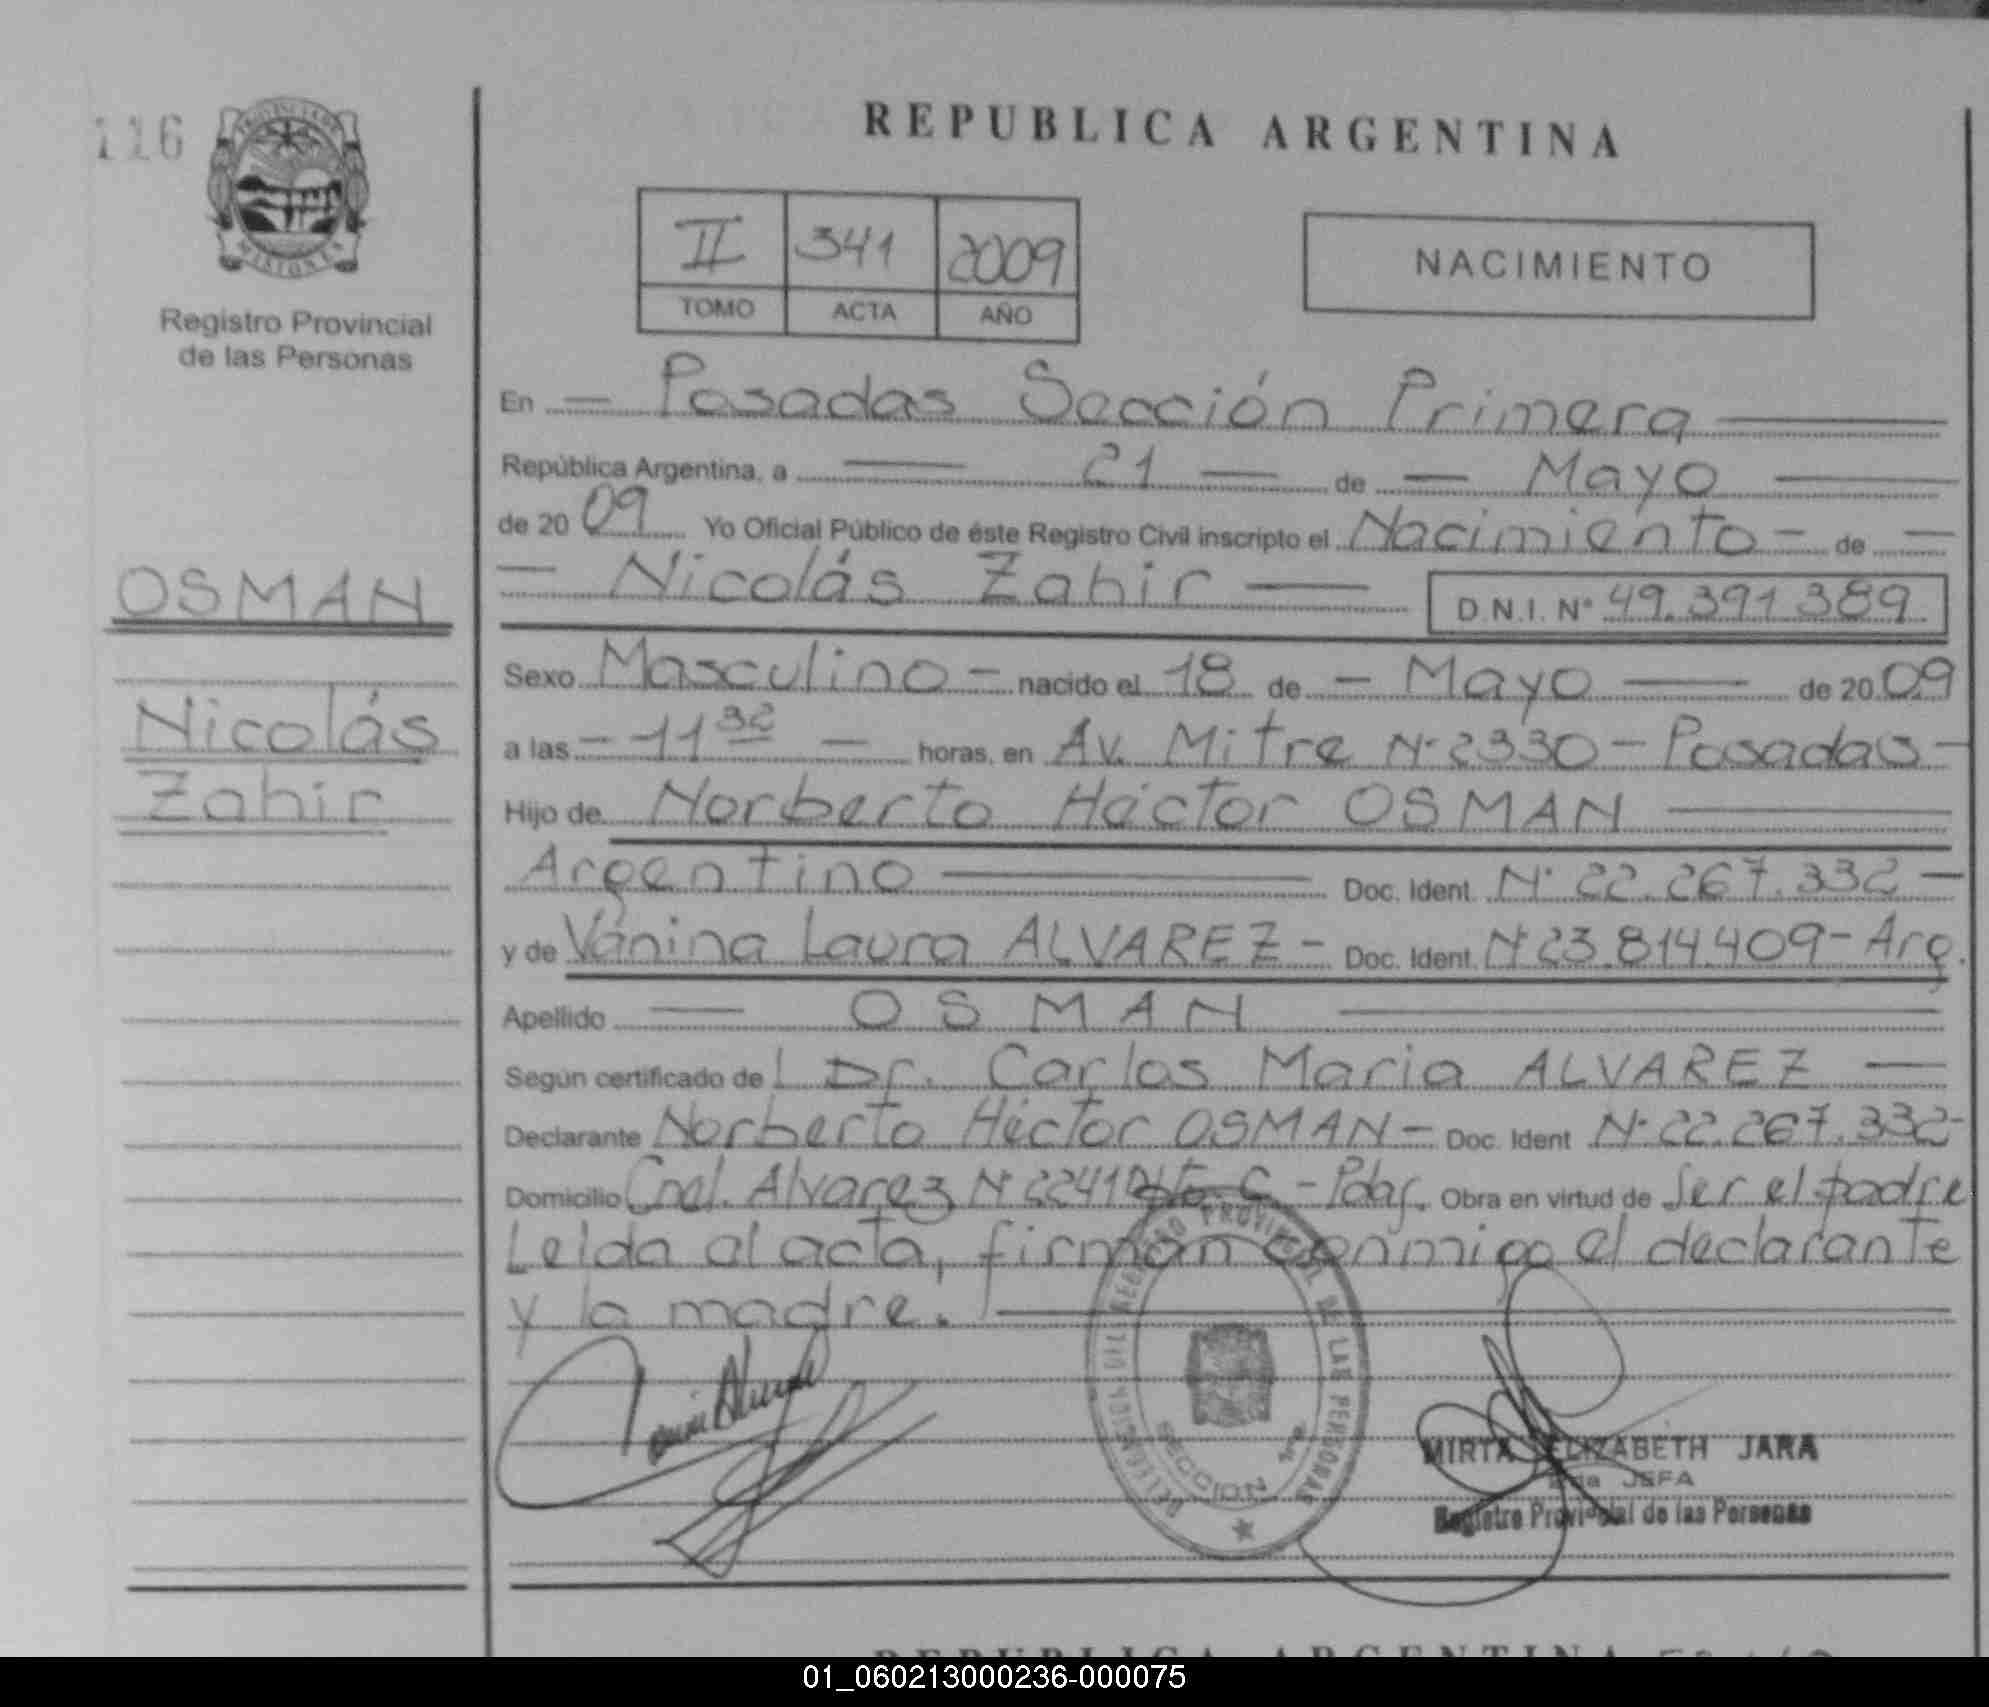 116
PROVINCIA DE
MISIONES
Registro Provincial
de las Personas
OSMAN
Nicolás
Zahir
REPUBLICA ARGENTINA
II 341 2009
TOMO ACTA AÑO
NACIMIENTO
En — Posadas Sección Primera —
República Argentina, a — 21 — de — Mayo —
de 2009 Yo Oficial Público de éste Registro Civil inscripto el Nacimiento — de —
— Nicolás Zahir — D.N.I. N° 49.391.389
Sexo Masculino — nacido el 18 de — Mayo — de 2009
a las — 11 32 — horas, en Av. Mitre N° 2330 — Posadas —
Hijo de Norberto Héctor OSMAN —
Argentino — Doc. Ident. N° 22.267.332 —
y de Vanina Laura ALVAREZ — Doc. Ident. N° 23.814.409 — Arg.
Apellido — OSMAN —
Según certificado de Dr. Carlos Maria ALVAREZ —
Declarante Norberto Héctor OSMAN — Doc. Ident N° 22.267.332 —
Domicilio Cnel. Alvarez N° 2241 Dpto. C — Pdas. Obra en virtud de Ser el padre
Leída al acta, firman conmigo el declarante
y la madre. —
REGISTRO PROVINCIAL DE LAS PERSONAS
SECCION 1ra
MIRTA ELIZABETH JARA
JEFA
Registro Provincial de las Personas
REPUBLICA ARGENTINA
01_060213000236-000075